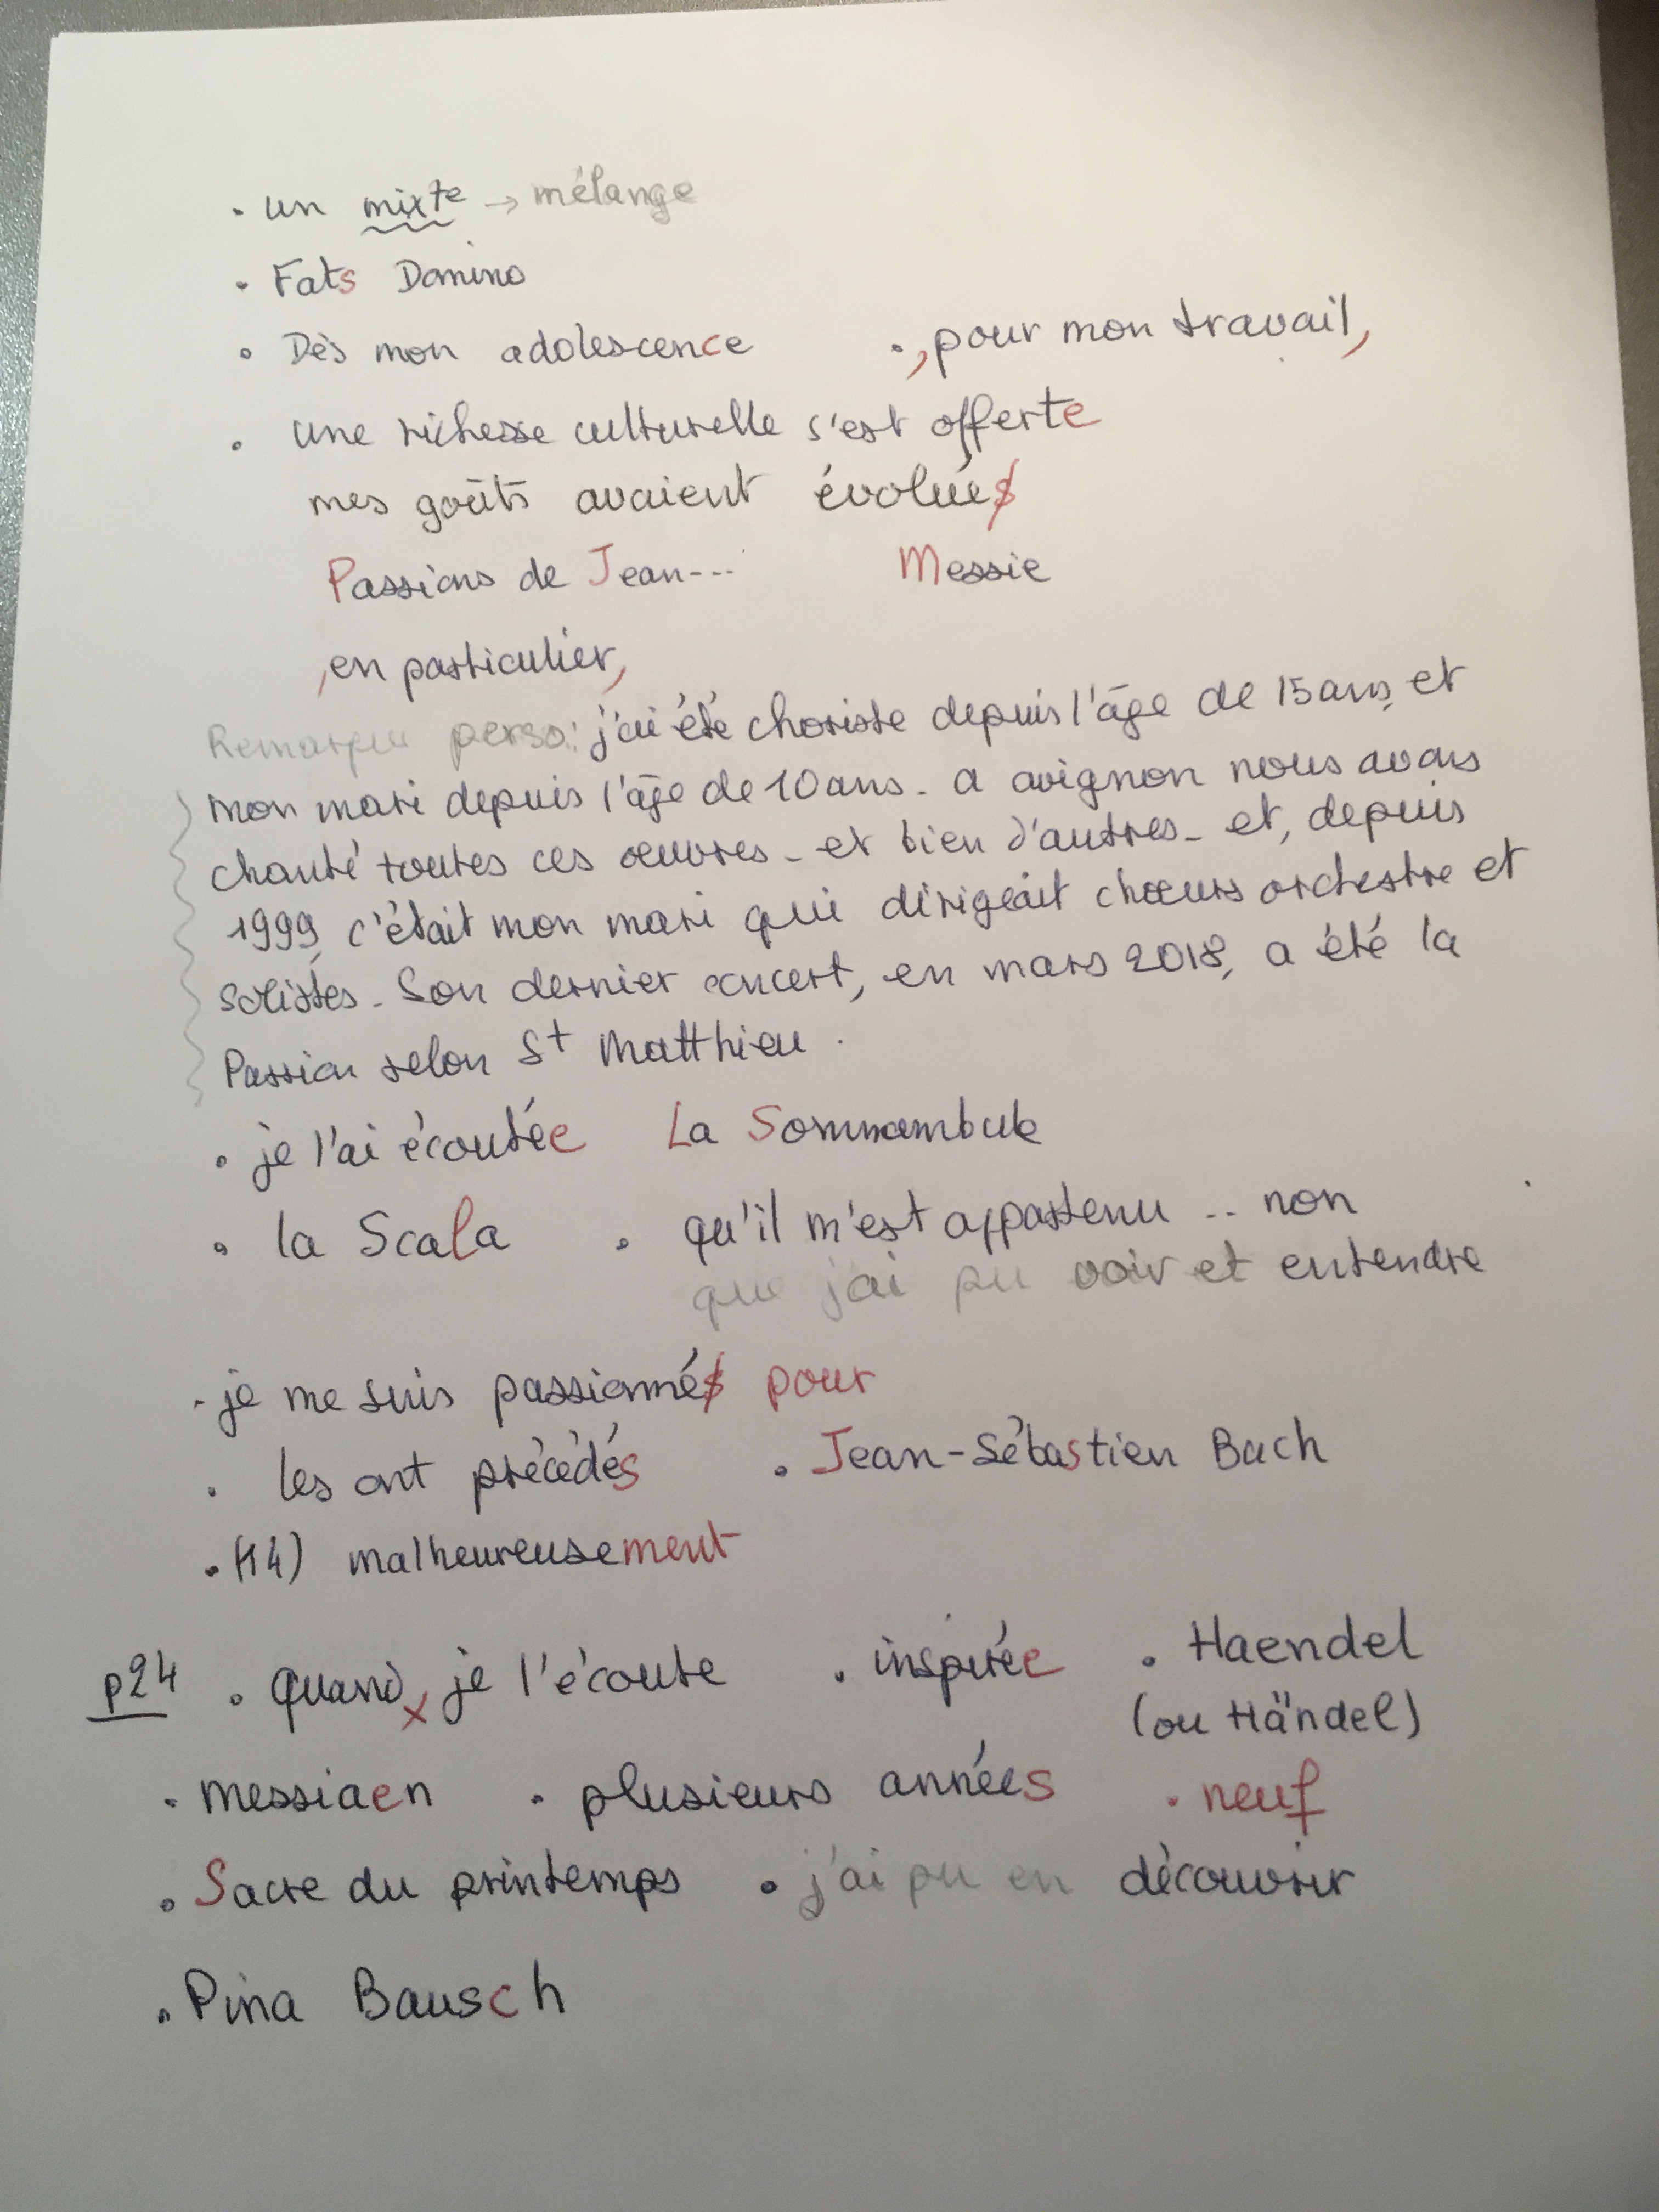 • un mixte → mélange
• Fats Domino
• Dès mon adolescence • , pour mon travail,
• une richesse culturelle s'est offerte
mes goûts avaient évolués
Passions de Jean--- Messie
, en particulier,
Remarque perso: j'ai été choriste depuis l'âge de 15 ans, et
mon mari depuis l'âge de 10 ans. a avignon nous avons
chanté toutes ces œuvres - et bien d'autres - et, depuis
1999, c'était mon mari qui dirigeait chœurs orchestre et
solistes. Son dernier concert, en mars 2018, a été la
Passion selon St Matthieu.
• je l'ai écoutée La Somnambule
• la Scala • qu'il m'est appartenu .. non
que j'ai pu voir et entendre
• je me suis passionnés pour
• les ont précédés • Jean-Sébastien Bach
• (14) malheureusement
p24 • quand x je l'écoute • inspirée • Haendel
(ou Händel)
• messiaen • plusieurs années • neuf
• Sacre du printemps • j'ai pu en découvrir
• Pina Bausch